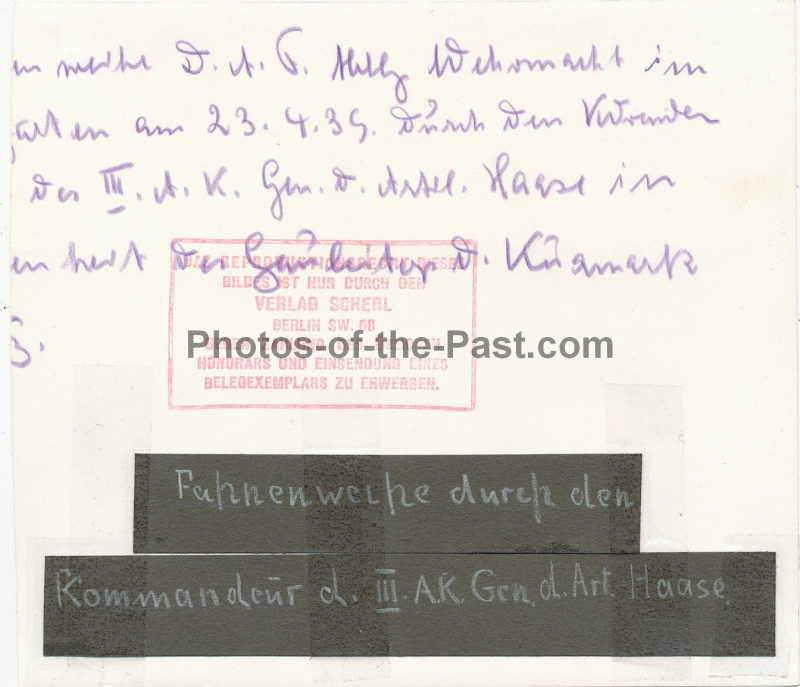 en weihe D. A. P. Abtlg Wehrmacht im
garten am 23.4.39. durch den
des III. A. K. Gen. d. Artl. Haase in
en heit des Gauleiters d. Kurmark
S.
DAS REPRODUKTIONSRECHT DIESES
BILDES IST NUR DURCH DEN
VERLAG SCHERL
BERLIN SW. 68
GEGEN ZAHLUNG DES
HONORARS UND EINSENDUNG EINES
BELEGEXEMPLARS ZU ERWERBEN.
Photos-of-the-Past.com
Fahnenweihe durch den
Kommandeur d. III. A.K. Gen. d. Art. Haase.